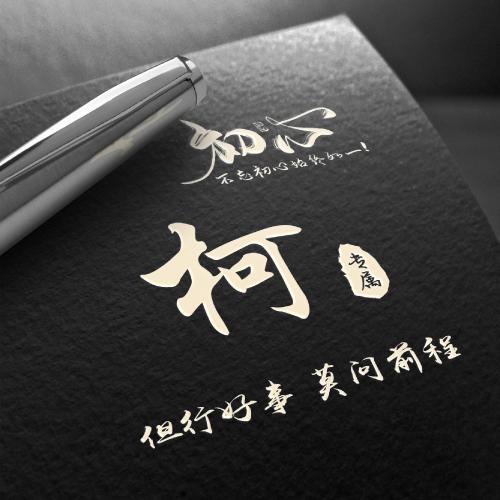 初心
不忘初心始终如一!
柯
专属
但行好事 莫问前程